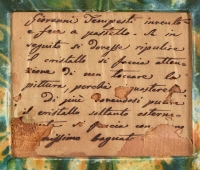 Giovanni Tempesti inventò
fece a pastello. Se in
seguito si dovesse ripulire
il cristallo si faccia atten-
zione di non toccare la
pittura perchè guasterebbe
di più dovendosi pulire
il cristallo soltanto esterna-
si faccia con
bagnat